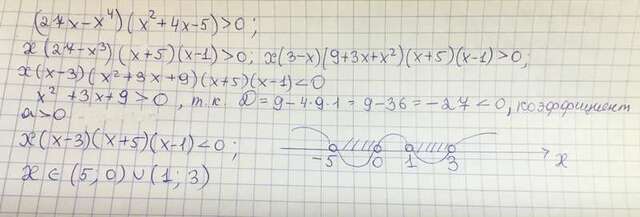 (27x-x⁴)(x²+4x-5)>0;
x(27-x³)(x+5)(x-1)>0; x(3-x)(9+3x+x²)(x+5)(x-1)>0;
x(x-3)(x²+3x+9)(x+5)(x-1)<0
x²+3x+9>0, т.к. D=9-4·9·1=9-36=-27<0, коэффициент
a>0
x(x-3)(x+5)(x-1)<0;
-5 0 1 3 x
x∈(5;0)∪(1;3)